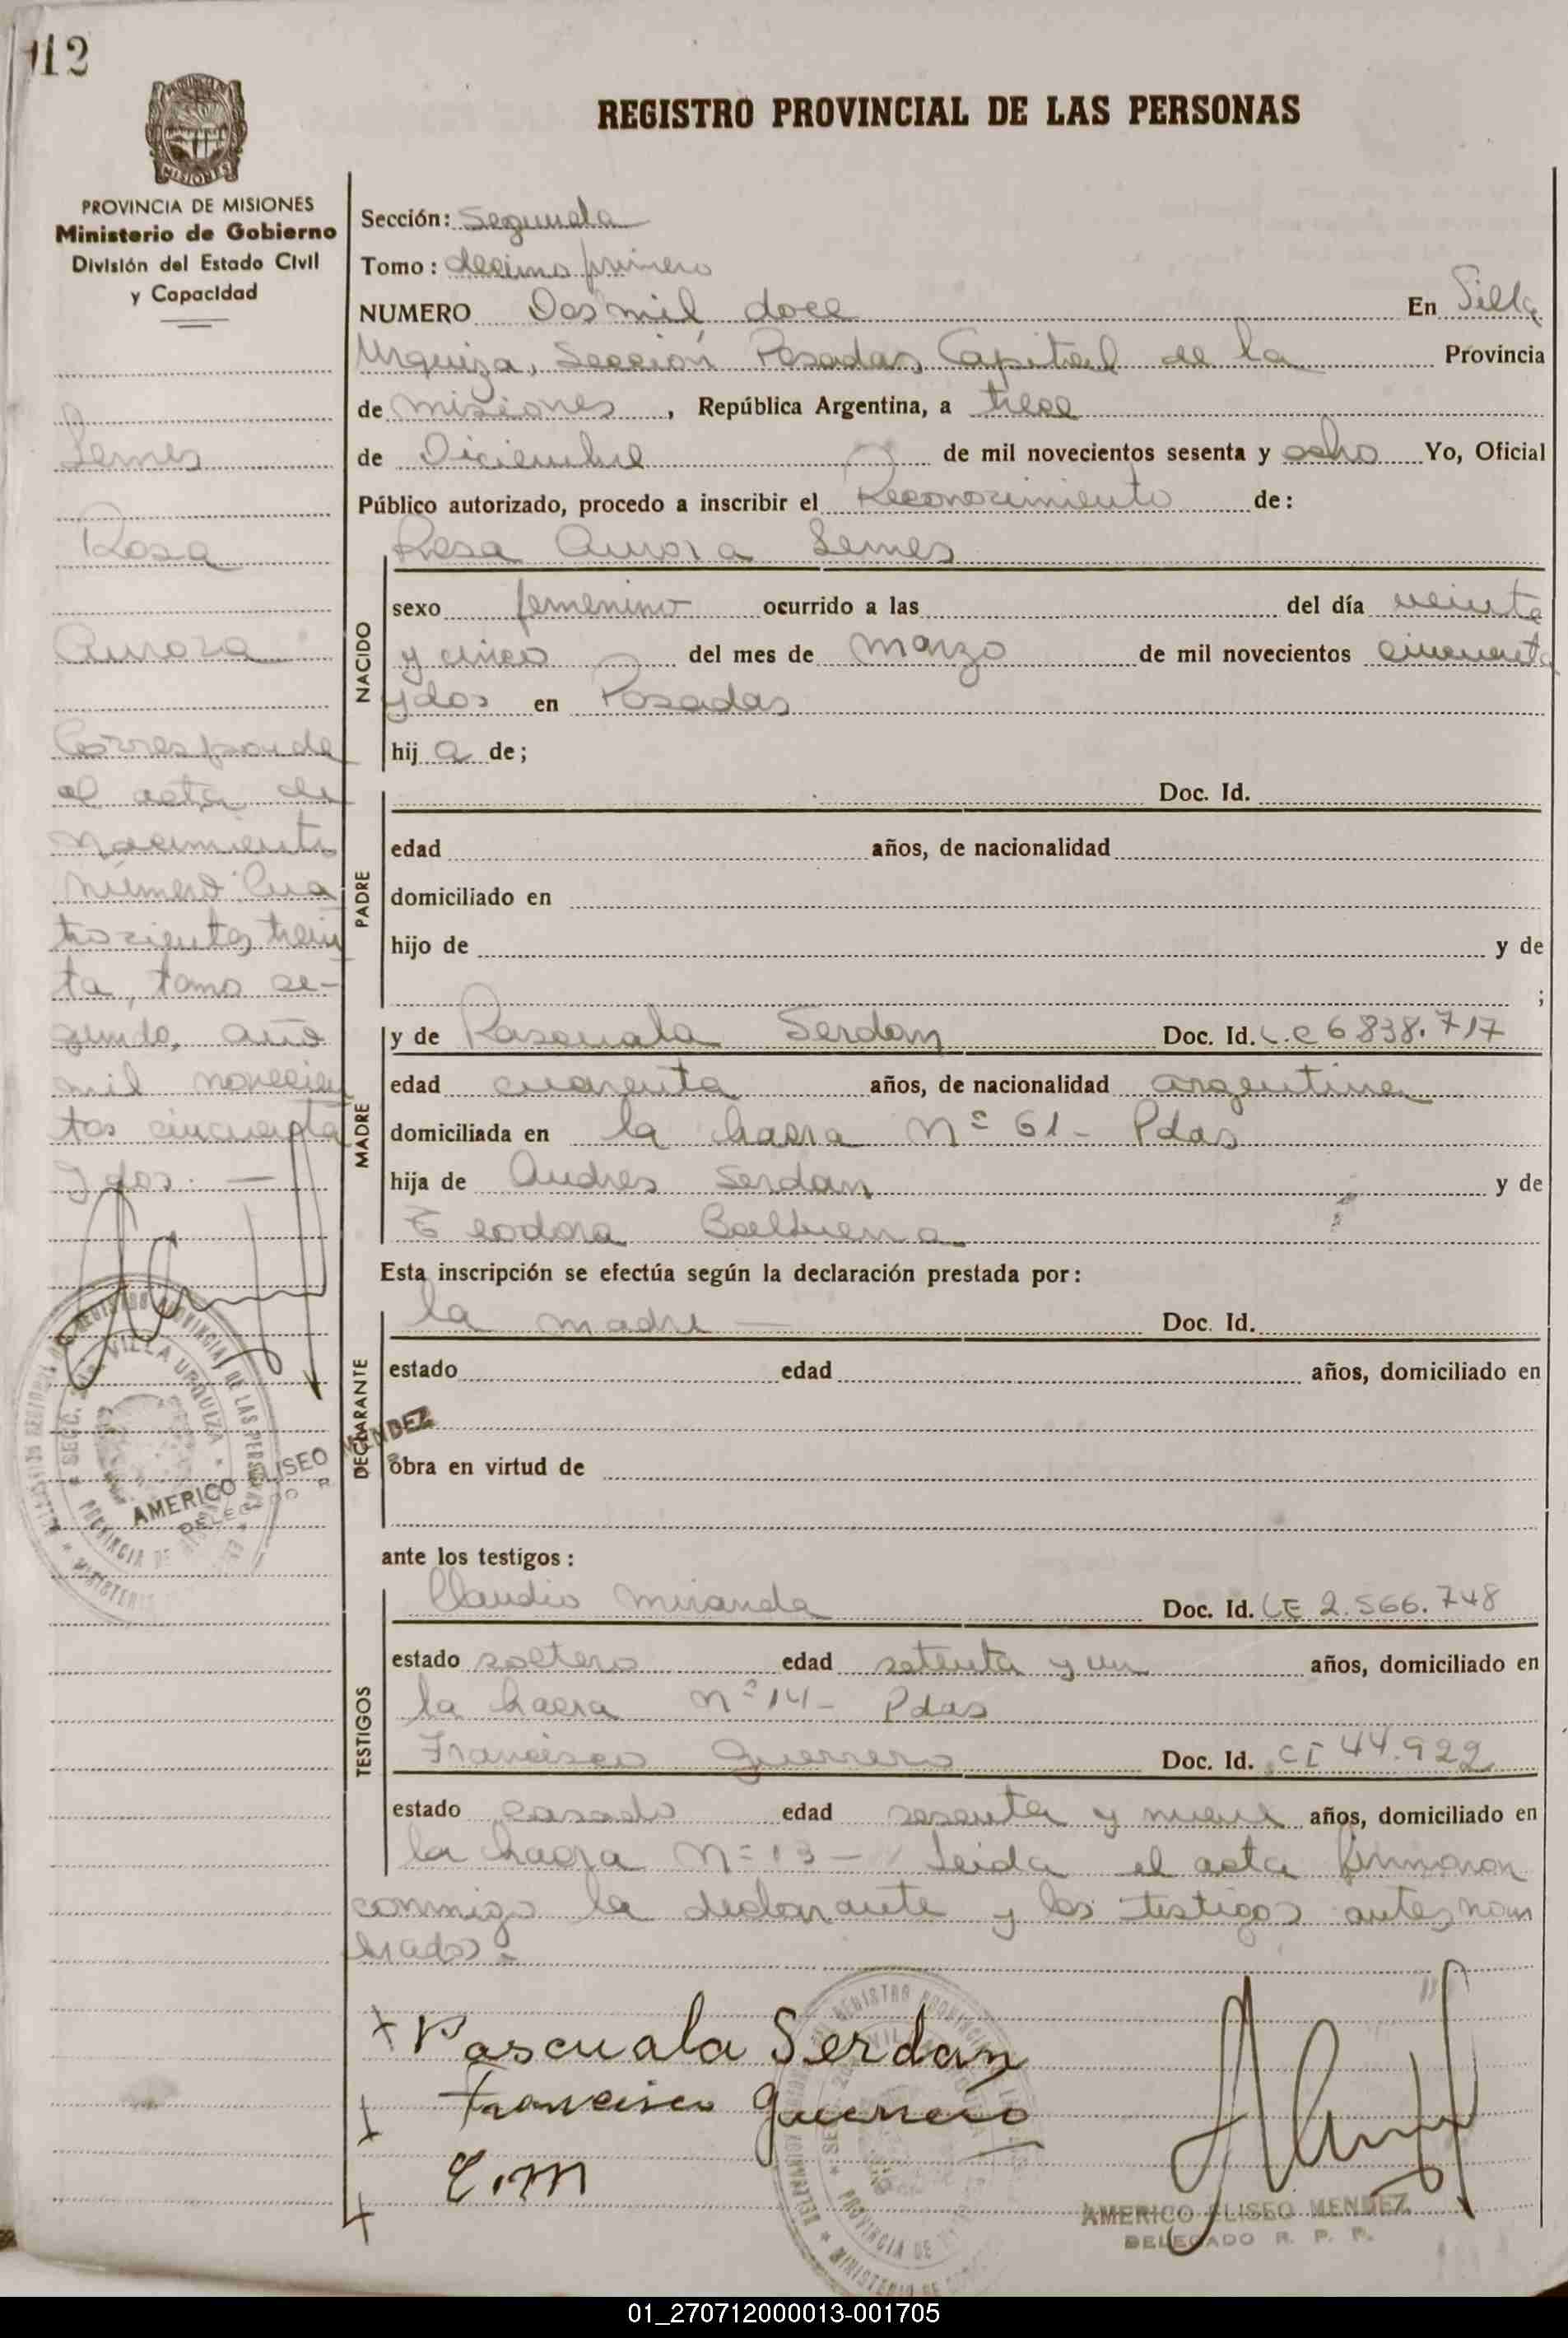 112
REGISTRO PROVINCIAL DE LAS PERSONAS
PROVINCIA DE MISIONES
Ministerio de Gobierno
División del Estado Civil
y Capacidad
Lemes
Rosa
Aurora
Corresponde
al acta de
nacimiento
número Cua
trocientos trein
ta, tomo se-
gundo, año
mil novecien
tos cincuenta
y dos. —
AMERICO ELISEO MENDEZ
DELEGADO R.
Sección: Segunda
Tomo: decimo primero
NUMERO Dos mil doce En Villa
Urquiza, Sección Posadas, Capital de la Provincia
de Misiones, República Argentina, a trece
de Diciembre de mil novecientos sesenta y ocho Yo, Oficial
Público autorizado, procedo a inscribir el Reconocimiento de:
Rosa Aurora Lemes
NACIDO
sexo femenino ocurrido a las del día veinte
y cinco del mes de marzo de mil novecientos cincuenta
y dos en Posadas
hij a de;
PADRE
Doc. Id.
edad años, de nacionalidad
domiciliado en
hijo de y de
;
MADRE
y de Pascuala Serdan Doc. Id. L.C 6838.717
edad cuarenta años, de nacionalidad argentina
domiciliada en la chacra Nº 61 - Pdas
hija de Andres Serdan y de
Teodora Balbuena
Esta inscripción se efectúa según la declaración prestada por:
DECLARANTE
la madre — Doc. Id.
estado edad años, domiciliado en
obra en virtud de
ante los testigos:
TESTIGOS
Claudio Miranda Doc. Id. LE 2.566.748
estado soltero edad setenta y un años, domiciliado en
la chacra Nº 14 - Pdas
Francisco Guerrero Doc. Id. CI 44.922
estado casado edad sesenta y nueve años, domiciliado en
la chacra Nº 13 - Leida el acta firmaron
conmigo la declarante y los testigos antes nom
brados -
Pascuala Serdan
Francisco Guerrero
AMERICO ELISEO MENDEZ
DELEGADO R. P. P.
01_270712000013-001705